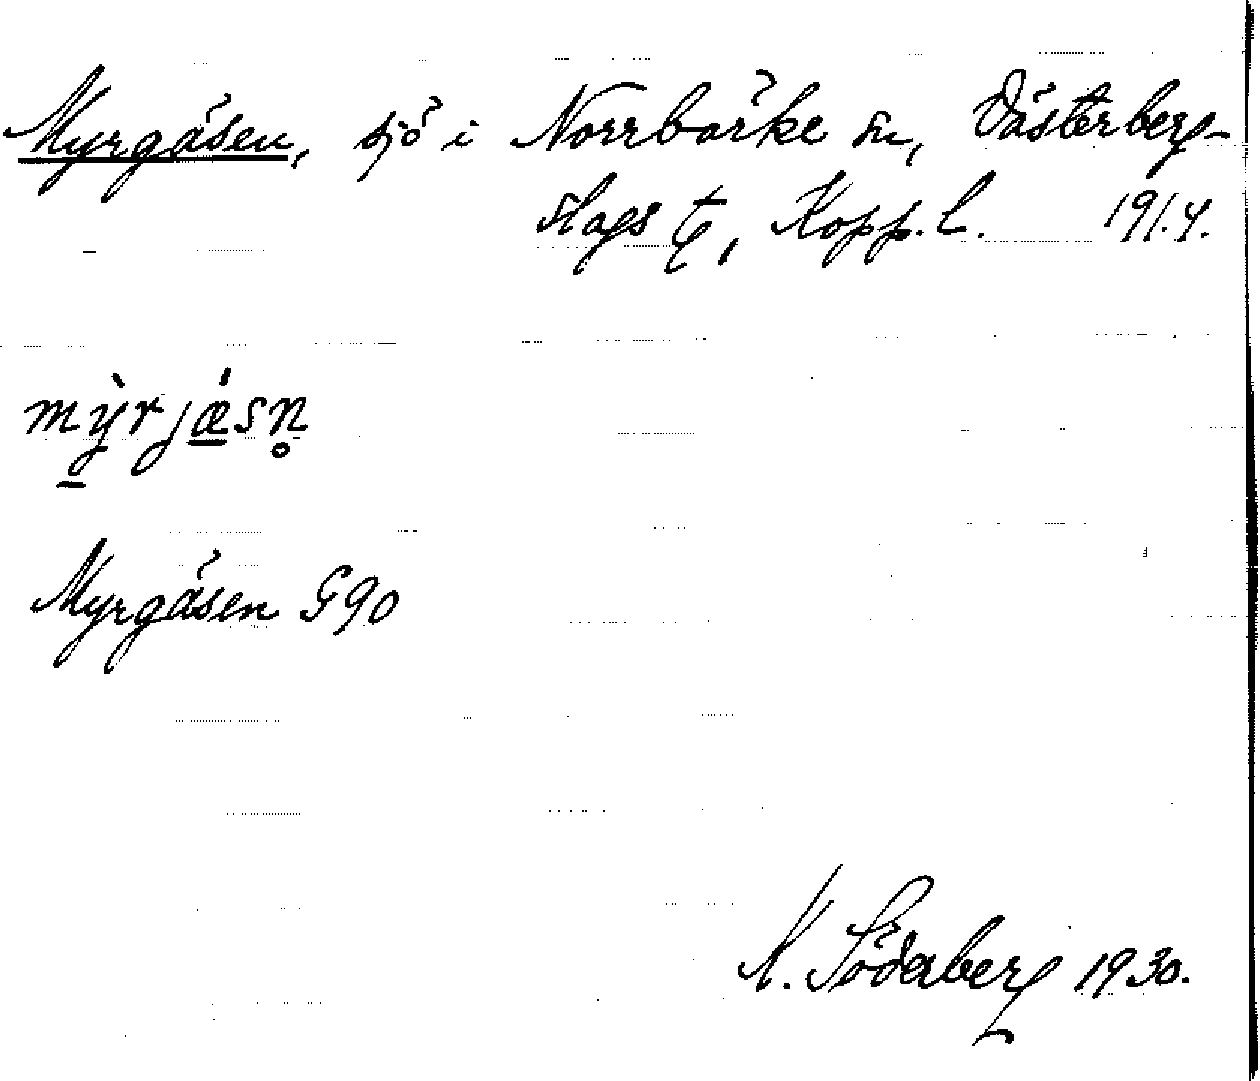 Myrgäsen, sjö i Norrbärke sn, Västerberg-
slags tg, Kopp. l. 191.4.
mỳrjǽsn̥
Myrgäsen G90
K. Söderberg 1930.